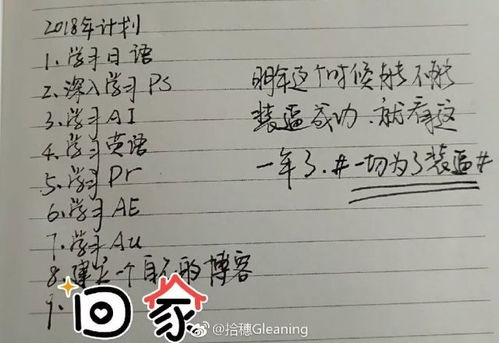 2018年计划
1. 学习日语
2. 深入学习PS
3. 学习AI
4. 学习英语
5. 学习Pr
6. 学习AE
7. 学习Au
8. 建立一个自己的博客
9.
回家
明年这个时候能不能
装逼成功.就看这
一年了.#一切为了装逼#
@拾穗Gleaning